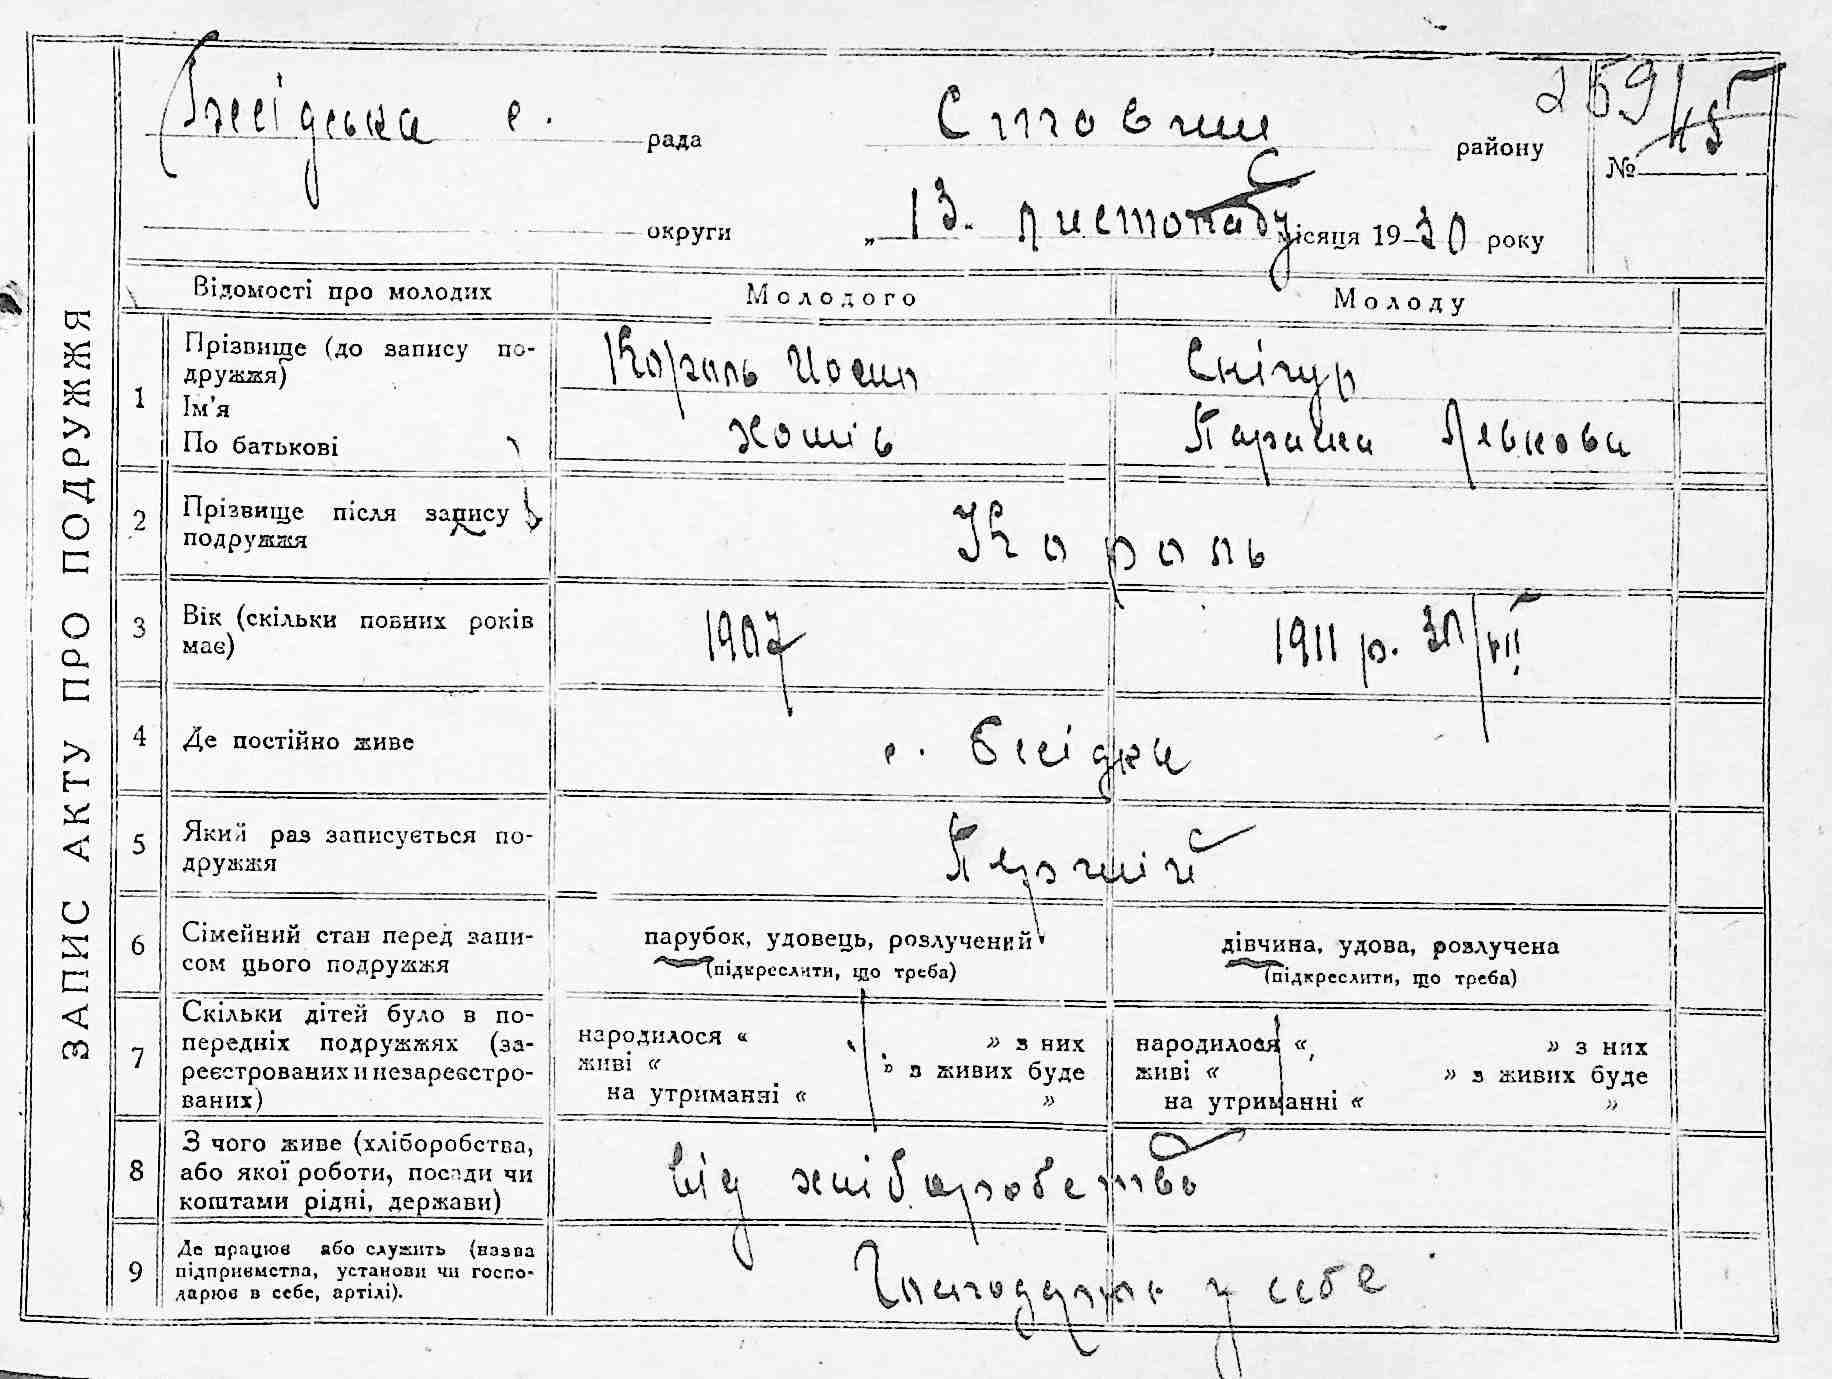 Бесідська с. рада Ставищ району 259/45 №
округи „ 13. листопаду місяця 1930 року
ЗАПИС АКТУ ПРО ПОДРУЖЖЯ
Відомості про молодих Молодого Молоду
1 Прізвище (до запису подружжя) Король Йосип Снігур
Ім'я
По батькові Хомів Параска Левкова
2 Прізвище після запису Король
подружжя
3 Вік (скільки повних років 1907 1911 р. 30/VII
має)
4 Де постійно живе с. Бесідка
5 Який раз записується по-
дружжя Перший
6 Сімейний стан перед запи- парубок, удовець, розлучений дівчина, удова, розлучена
сом цього подружжя (підкреслити, що треба) (підкреслити, що треба)
7 Скільки дітей було в по-
передніх подружжях (за- народилося « » з них народилося « » з них
реєстрованих и незареєстро- живі « » з живих буде живі « » з живих буде
ваних) на утриманні « » на утриманні « »
8 З чого живе (хліборобства,
або якої роботи, посади чи від хліборобства
коштами рідні, держави)
9 Де працює або служить (назва
підприємства, установи чи госпо- у себе
дарює в себе, артілі).